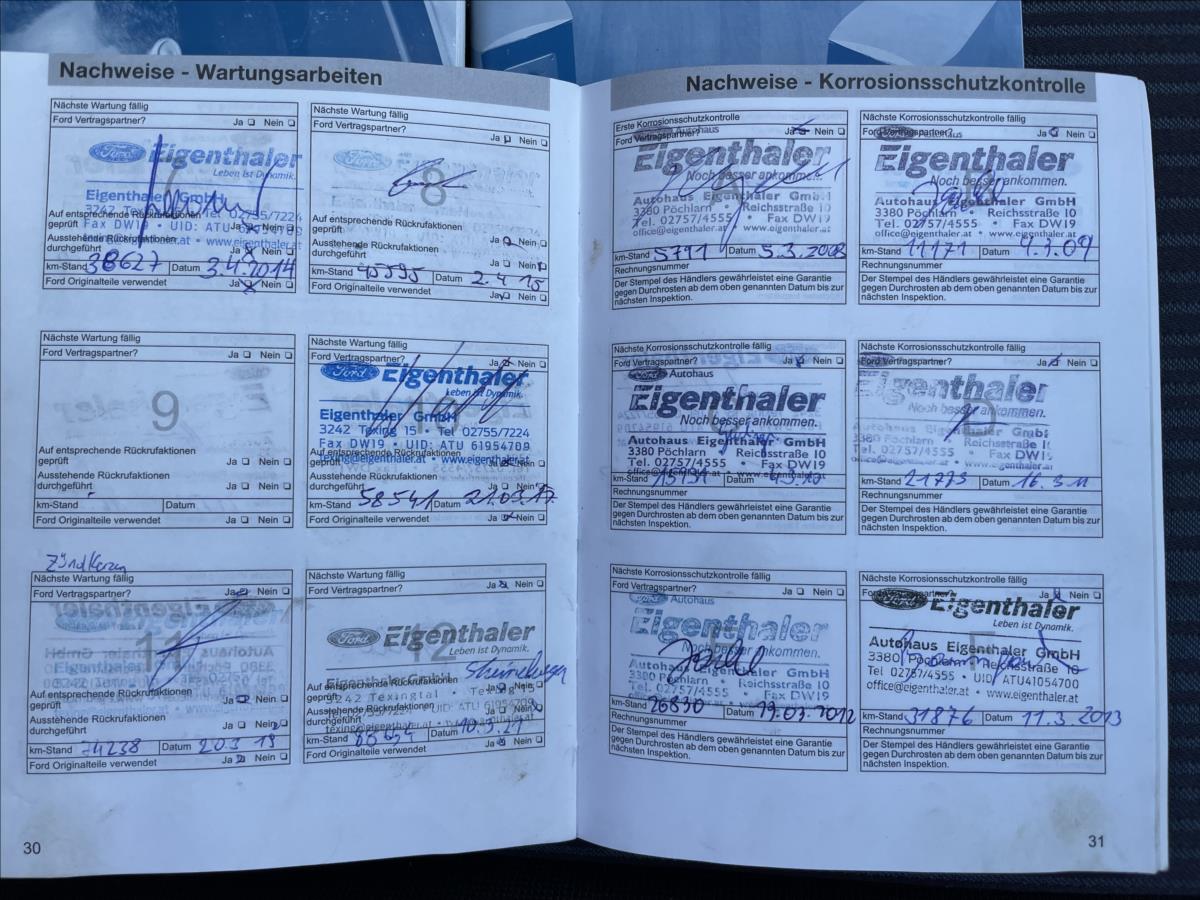 Nachweise - Wartungsarbeiten
Nächste Wartung fällig
Ford Vertragspartner? Ja Nein
Ford Eigenthaler
Leben ist Dynamik.
Eigenthaler GmbH
3242 Texing 15 Tel 02755/7224
Auf entsprechende Rückrufaktionen
geprüft
Fax DW19 • UID: ATU 61954709
Ausstehende Rückrufaktionen
www.eigenthaler.at
durchgeführt Ja Nein
km-Stand 38627 Datum 3.4.2014
Ford Originalteile verwendet Ja Nein
Nächste Wartung fällig
Ford Vertragspartner? Ja Nein
8
Auf entsprechende Rückrufaktionen
geprüft Ja Nein
Ausstehende Rückrufaktionen
durchgeführt Ja Nein
km-Stand 45595 Datum 2.4.15
Ford Originalteile verwendet Ja Nein
Nächste Wartung fällig
Ford Vertragspartner? Ja Nein
9
Auf entsprechende Rückrufaktionen
geprüft Ja Nein
Ausstehende Rückrufaktionen
durchgeführt Ja Nein
km-Stand Datum
Ford Originalteile verwendet Ja Nein
Nächste Wartung fällig
Ford Vertragspartner? Ja Nein
Ford Eigenthaler
Leben ist Dynamik.
Eigenthaler GmbH
3242 Texing 15 • Tel 02755/7224
Fax DW19 • UID: ATU 61954709
texing@eigenthaler.at • www.eigenthaler.at
geprüft
Ausstehende Rückrufaktionen
durchgeführt Ja Nein
km-Stand 58541 Datum 21.03.17
Ford Originalteile verwendet Ja Nein
Zündkerzen
Nächste Wartung fällig
Ford Vertragspartner? Ja Nein
11
Auf entsprechende Rückrufaktionen
geprüft Ja Nein
Ausstehende Rückrufaktionen
durchgeführt Ja Nein
km-Stand 74238 Datum 20.3.19
Ford Originalteile verwendet Ja Nein
Nächste Wartung fällig
Ford Vertragspartner? Ja Nein
Ford Eigenthaler
12
Leben ist Dynamik.
Auf entsprechende Rückrufaktionen
geprüft
3242 Texingtal
Ausstehende Rückrufaktionen
durchgeführt
texing@eigenthaler.at
km-Stand Datum 10.3.21
Ford Originalteile verwendet Ja Nein
30
Nachweise - Korrosionsschutzkontrolle
Erste Korrosionsschutzkontrolle
Ford Vertragspartner? Ja Nein
Autohaus
Eigenthaler
Noch besser ankommen.
Autohaus Eigenthaler GmbH
3380 Pöchlarn • Reichsstraße 10
Tel. 02757/4555 • Fax DW19
office@eigenthaler.at • www.eigenthaler.at
km-Stand 5791 Datum 5.3.2008
Rechnungsnummer
Der Stempel des Händlers gewährleistet eine Garantie
gegen Durchrosten ab dem oben genannten Datum bis zur
nächsten Inspektion.
Nächste Korrosionsschutzkontrolle fällig
Ford Vertragspartner? Ja Nein
Eigenthaler
Noch besser ankommen.
Autohaus Eigenthaler GmbH
3380 Pöchlarn • Reichsstraße 10
Tel. 02757/4555 • Fax DW19
office@eigenthaler.at • www.eigenthaler.at
km-Stand 11171 Datum 9.3.09
Rechnungsnummer
Der Stempel des Händlers gewährleistet eine Garantie
gegen Durchrosten ab dem oben genannten Datum bis zur
nächsten Inspektion.
Nächste Korrosionsschutzkontrolle fällig
Ford Vertragspartner? Ja Nein
Ford Autohaus
Eigenthaler
Noch besser ankommen.
Autohaus Eigenthaler GmbH
3380 Pöchlarn • Reichsstraße 10
Tel. 02757/4555 • Fax DW19
km-Stand Datum
Rechnungsnummer
Der Stempel des Händlers gewährleistet eine Garantie
gegen Durchrosten ab dem oben genannten Datum bis zur
nächsten Inspektion.
Nächste Korrosionsschutzkontrolle fällig
Ford Vertragspartner? Ja Nein
Eigenthaler
Noch besser ankommen.
Autohaus Eigenthaler GmbH
3380 Pöchlarn Reichsstraße 10
Tel. 02757/4555 • Fax DW19
km-Stand 21773 Datum 16.3.11
Rechnungsnummer
Der Stempel des Händlers gewährleistet eine Garantie
gegen Durchrosten ab dem oben genannten Datum bis zur
nächsten Inspektion.
Nächste Korrosionsschutzkontrolle fällig
Ford Vertragspartner? Ja Nein
Autohaus
Eigenthaler
Noch besser ankommen.
Autohaus Eigenthaler GmbH
3380 Pöchlarn • Reichsstraße 10
Tel. 02757/4555 • Fax DW19
km-Stand 26830 Datum 19.03.2012
Rechnungsnummer
Der Stempel des Händlers gewährleistet eine Garantie
gegen Durchrosten ab dem oben genannten Datum bis zur
nächsten Inspektion.
Nächste Korrosionsschutzkontrolle fällig
Ford Vertragspartner? Ja Nein
Ford Eigenthaler
Leben ist Dynamik.
Autohaus Eigenthaler GmbH
3380 Pöchlarn, Reichsstraße 10
Tel 02757/4555 • UID: ATU41054700
office@eigenthaler.at • www.eigenthaler.at
km-Stand 31876 Datum 11.3.2013
Rechnungsnummer
Der Stempel des Händlers gewährleistet eine Garantie
gegen Durchrosten ab dem oben genannten Datum bis zur
nächsten Inspektion.
31